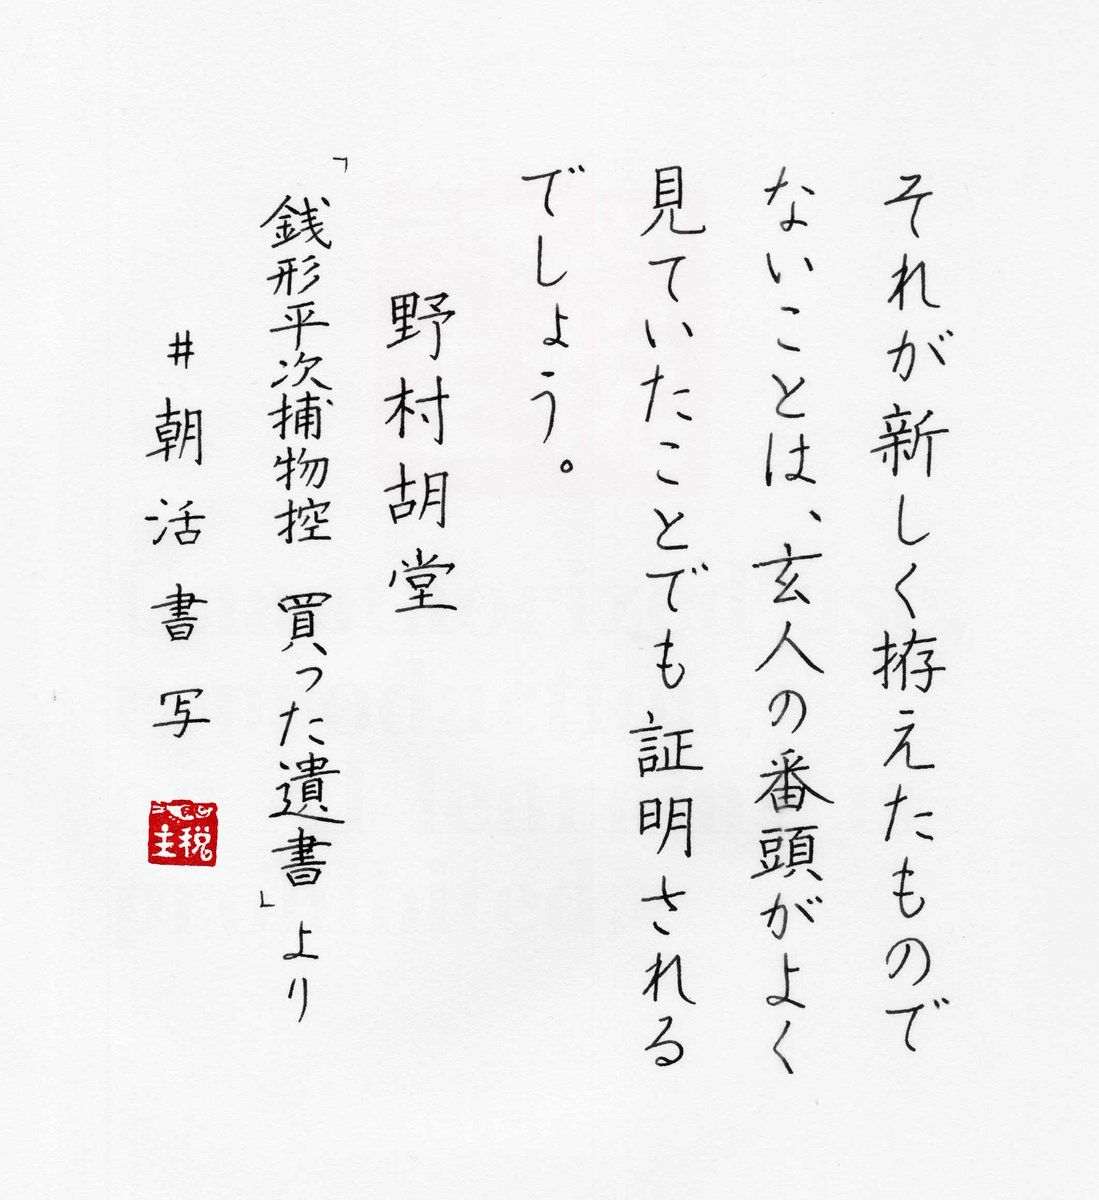 それが新しく拵えたもので
ないことは、玄人の番頭がよく
見ていたことでも証明される
でしょう。
野村胡堂
「銭形平次捕物控　買った遺書」より
#朝活書写
主税